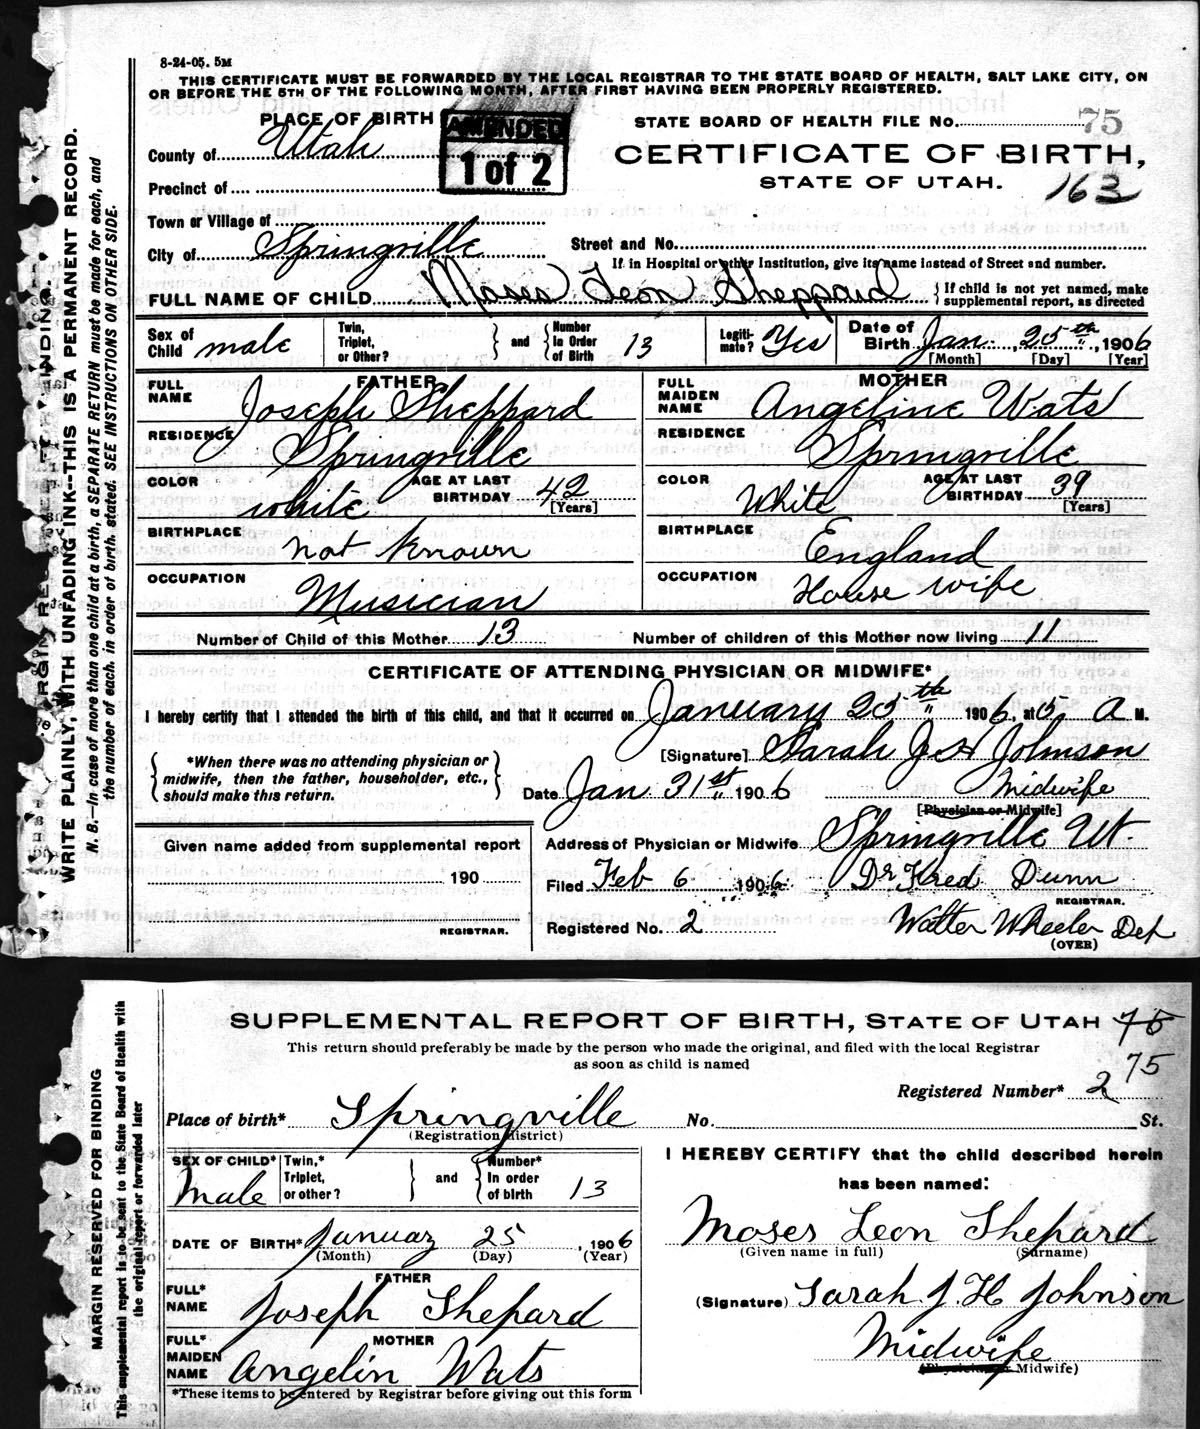 8-24-05. 5M
THIS CERTIFICATE MUST BE FORWARDED BY THE LOCAL REGISTRAR TO THE STATE BOARD OF HEALTH, SALT LAKE CITY, ON
OR BEFORE THE 5TH OF THE FOLLOWING MONTH, AFTER FIRST HAVING BEEN PROPERLY REGISTERED.
PLACE OF BIRTH
AMENDED
1 of 2
STATE BOARD OF HEALTH FILE No. 75
County of Utah
CERTIFICATE OF BIRTH,
Precinct of
STATE OF UTAH.
163
Town or Village of
City of Springville
Street and No.
If in Hospital or other Institution, give its name instead of Street and number.
FULL NAME OF CHILD Moses Leon Sheppard
{ If child is not yet named, make
supplemental report, as directed
Sex of Child male
Twin, Triplet, or Other? } and { Number In Order of Birth 13
Legiti-mate? Yes
Date of Birth Jan. 25th, 1906
[Month] [Day] [Year]
FATHER
FULL NAME Joseph Sheppard
MOTHER
FULL MAIDEN NAME Angeline Wats
RESIDENCE Springville
RESIDENCE Springville
COLOR white
AGE AT LAST BIRTHDAY 42
[Years]
COLOR White
AGE AT LAST BIRTHDAY 39
[Years]
BIRTHPLACE not known
BIRTHPLACE England
OCCUPATION Musician
OCCUPATION House wife
Number of Child of this Mother 13
Number of children of this Mother now living 11
CERTIFICATE OF ATTENDING PHYSICIAN OR MIDWIFE*
I hereby certify that I attended the birth of this child, and that it occurred on January 25th 1906, at 5 A M.
{ *When there was no attending physician or
midwife, then the father, householder, etc.,
should make this return. }
[Signature] Sarah J. H Johnson
Date Jan 31st 1906 Midwife
[Physician or Midwife]
Given name added from supplemental report
190
REGISTRAR.
Address of Physician or Midwife Springville Ut.
Filed Feb 6 1906 Dr Fred Dunn
REGISTRAR.
Registered No. 2 Walter Wheeler Dep
(OVER)
MARGIN RESERVED FOR BINDING.
WRITE PLAINLY, WITH UNFADING INK—THIS IS A PERMANENT RECORD.
N. B.—In case of more than one child at a birth, a SEPARATE RETURN must be made for each, and
the number of each, in order of birth, stated. SEE INSTRUCTIONS ON OTHER SIDE.
SUPPLEMENTAL REPORT OF BIRTH, STATE OF UTAH 75
This return should preferably be made by the person who made the original, and filed with the local Registrar
as soon as child is named
75
Registered Number* 2
Place of birth* Springville No. St.
(Registration district)
SEX OF CHILD* Male
Twin,* Triplet, or other? } and { Number* In order of birth 13
I HEREBY CERTIFY that the child described herein
has been named:
DATE OF BIRTH* Januay 25, 1906
(Month) (Day) (Year)
Moses Leon Shepard
(Given name in full) (Surname)
FATHER
FULL* NAME Joseph Shepard
(Signature) Sarah J. H Johnson
MOTHER
FULL* MAIDEN NAME Angelin Wats
Midwife
(Physician or Midwife)
*These items to be entered by Registrar before giving out this form
MARGIN RESERVED FOR BINDING
This supplemental report is to be sent to the State Board of Health with
the original report or forwarded later